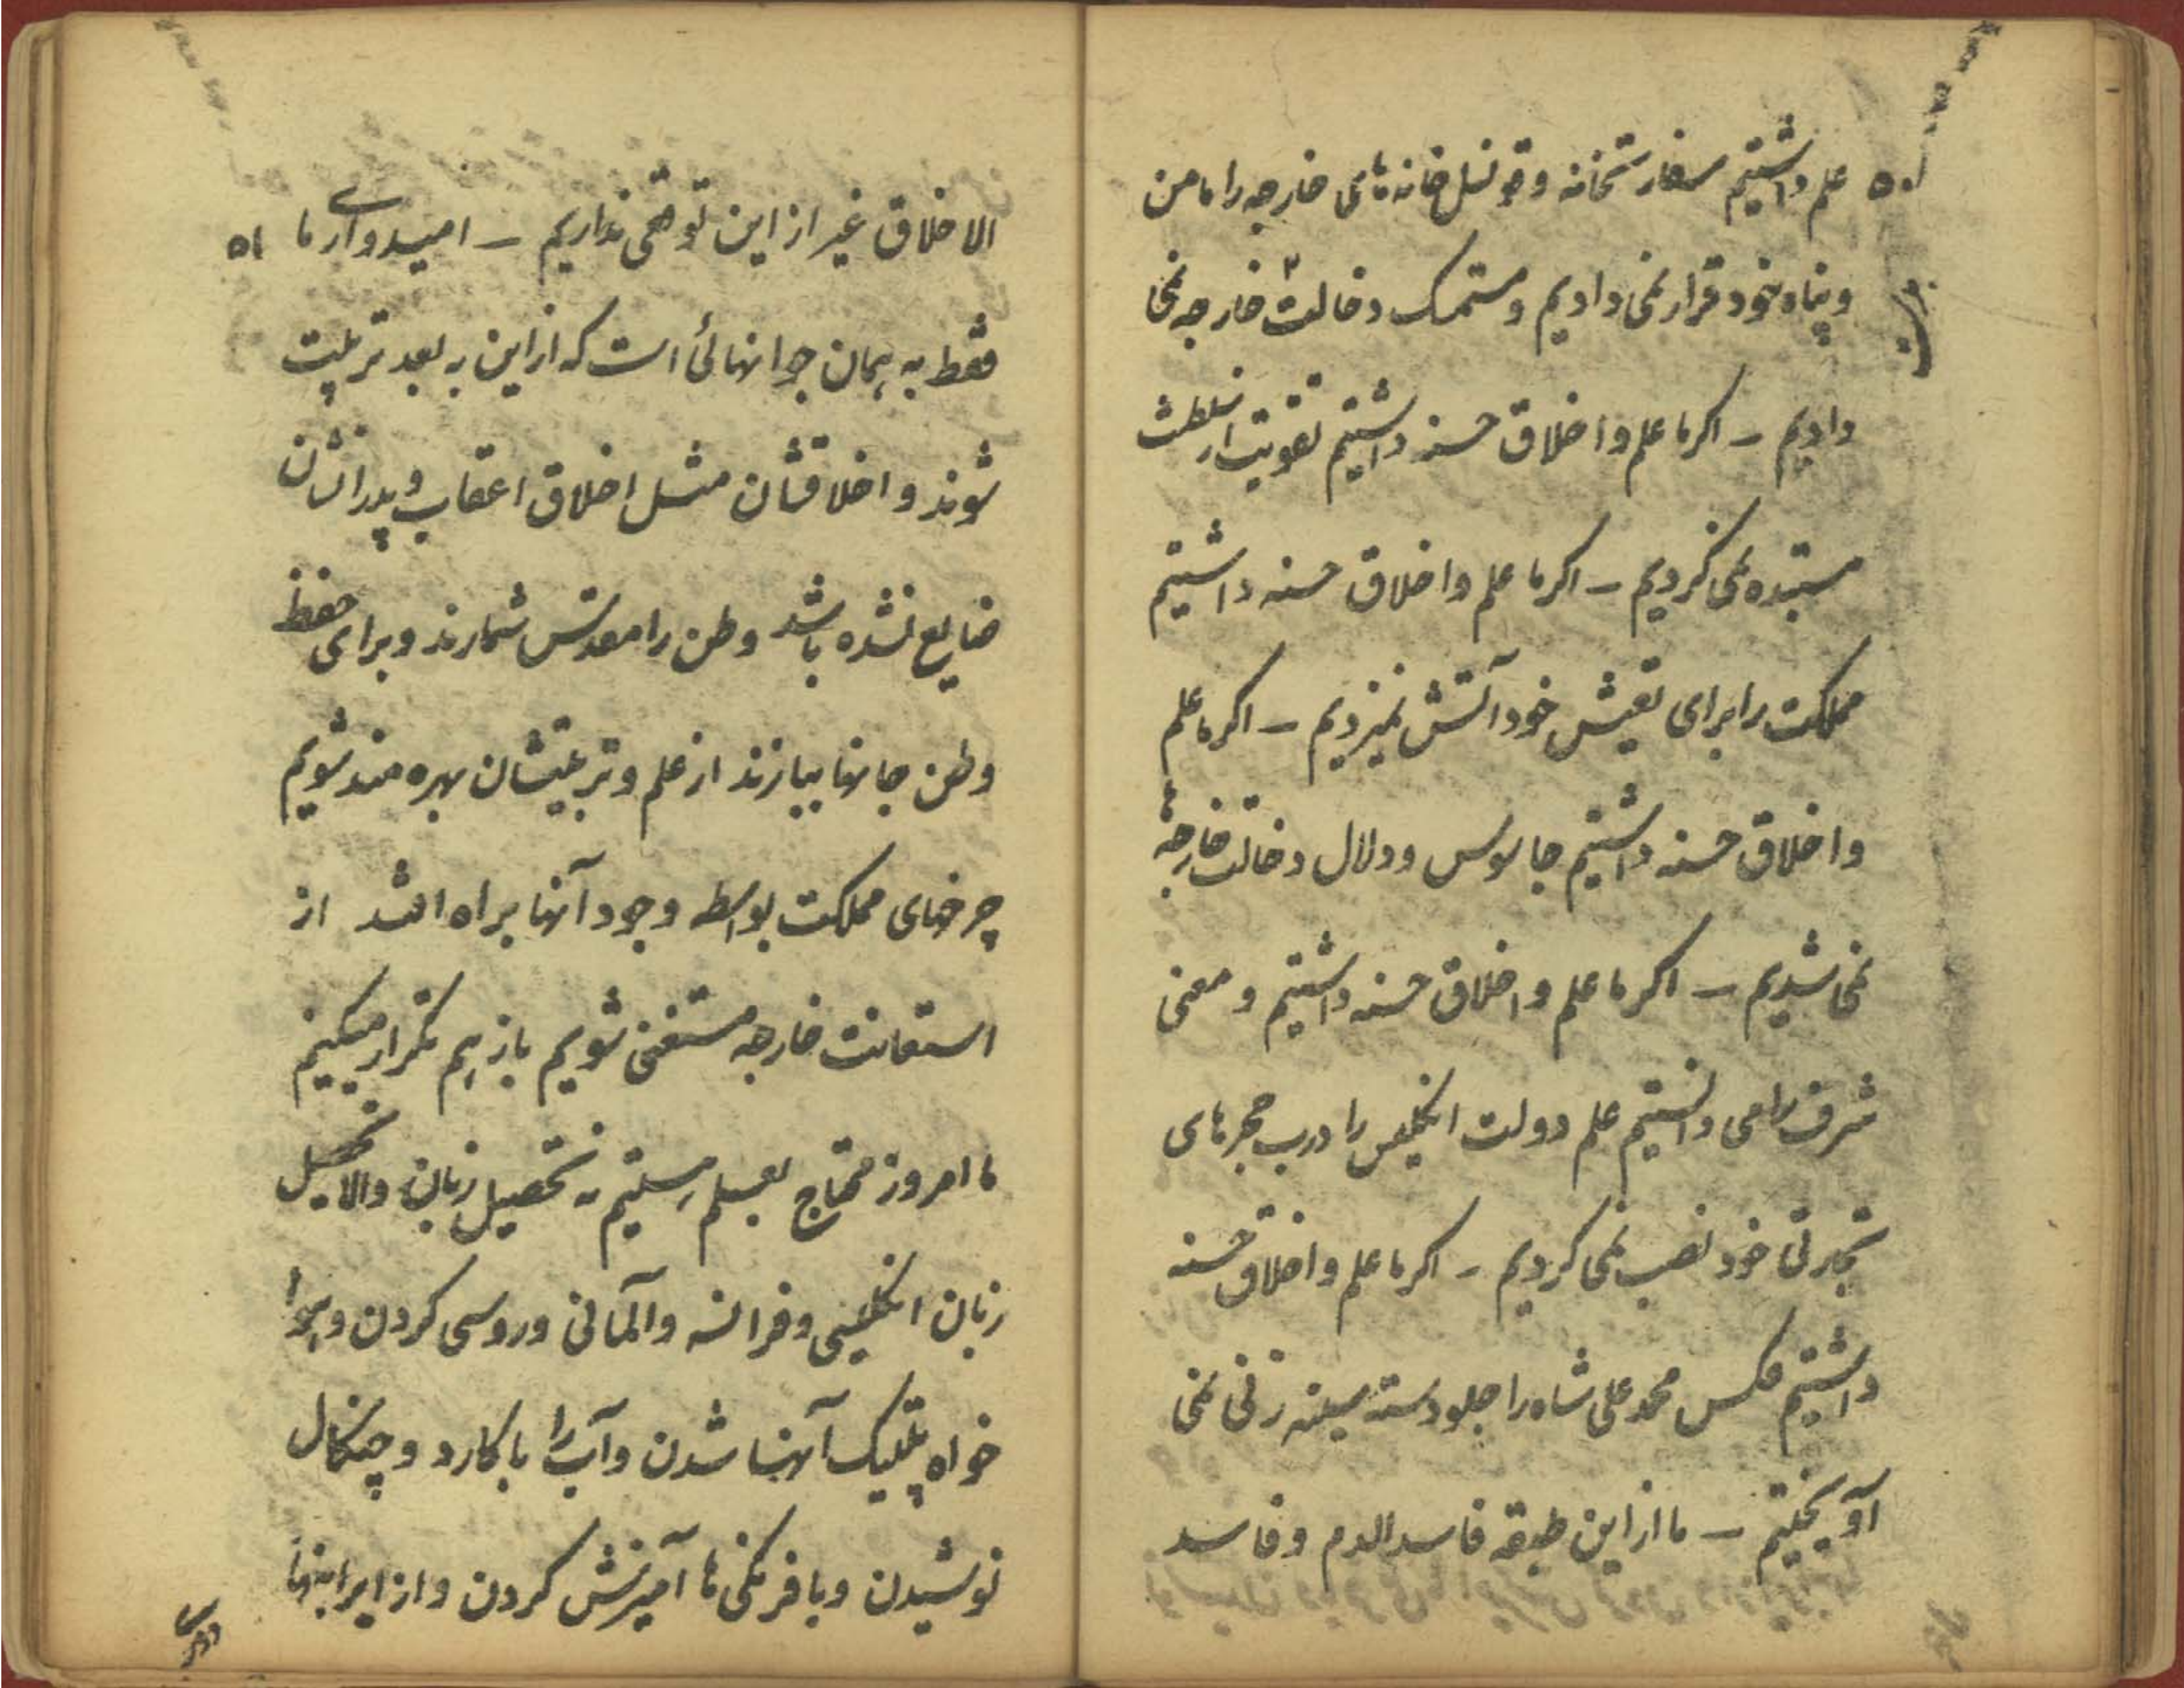 ۵۰ علم داشتیم سفارتخانه و قونسل خانه های خارجه را مامن
و پناه خود قرار نمی دادیم و مستمسک دخالت خارجه نمی
دادیم – اگر ما علم و اخلاق حسنه داشتیم تقویت از سلطنت
مستبده نمی کردیم – اگر ما علم و اخلاق حسنه داشتیم
مملکت را برای تعیش خود آتش نمیزدیم – اگر ما علم
و اخلاق حسنه داشتیم جاسوس و دلال دخالت خارجه ها
نمی شدیم – اگر ما علم و اخلاق حسنه داشتیم و معنی
شرف را می دانستیم علم دولت انگلیس را درب حجره های
تجارتی خود نصب نمی کردیم – اگر ما علم و اخلاق حسنه
داشتیم عکس محمد علی شاه را جلو دسته سینه زنی نمی
آویختیم – ما از این طبقه فاسد الدم و فاسد
الاخلاق غیر از این توقعی نداریم – امیدواری ما ۵۱
فقط به همان جوانهائی است که از این به بعد تربیت
شوند و اخلاقشان مثل اخلاق اعقاب و پدرانشان
ضایع نشده باشد وطن را مقدس شمارند و برای حفظ
وطن جانها ببازند از علم و تربیتشان بهره مند شویم
چرخهای مملکت بواسطه وجود آنها براه افتد از
استعانت خارجه مستغنی شویم باز هم تکرار میکنیم
ما امروز محتاج بعلم هستیم نه تحصیل زبان والا تحصیل
زبان انگلیسی و فرانسه و آلمانی و روسی کردن و هوا
خواه پلتیک آنها شدن و آب را با کارد و چنگال
نوشیدن و با فرنگی ها آمیزش کردن و از ایرانیها
دوری